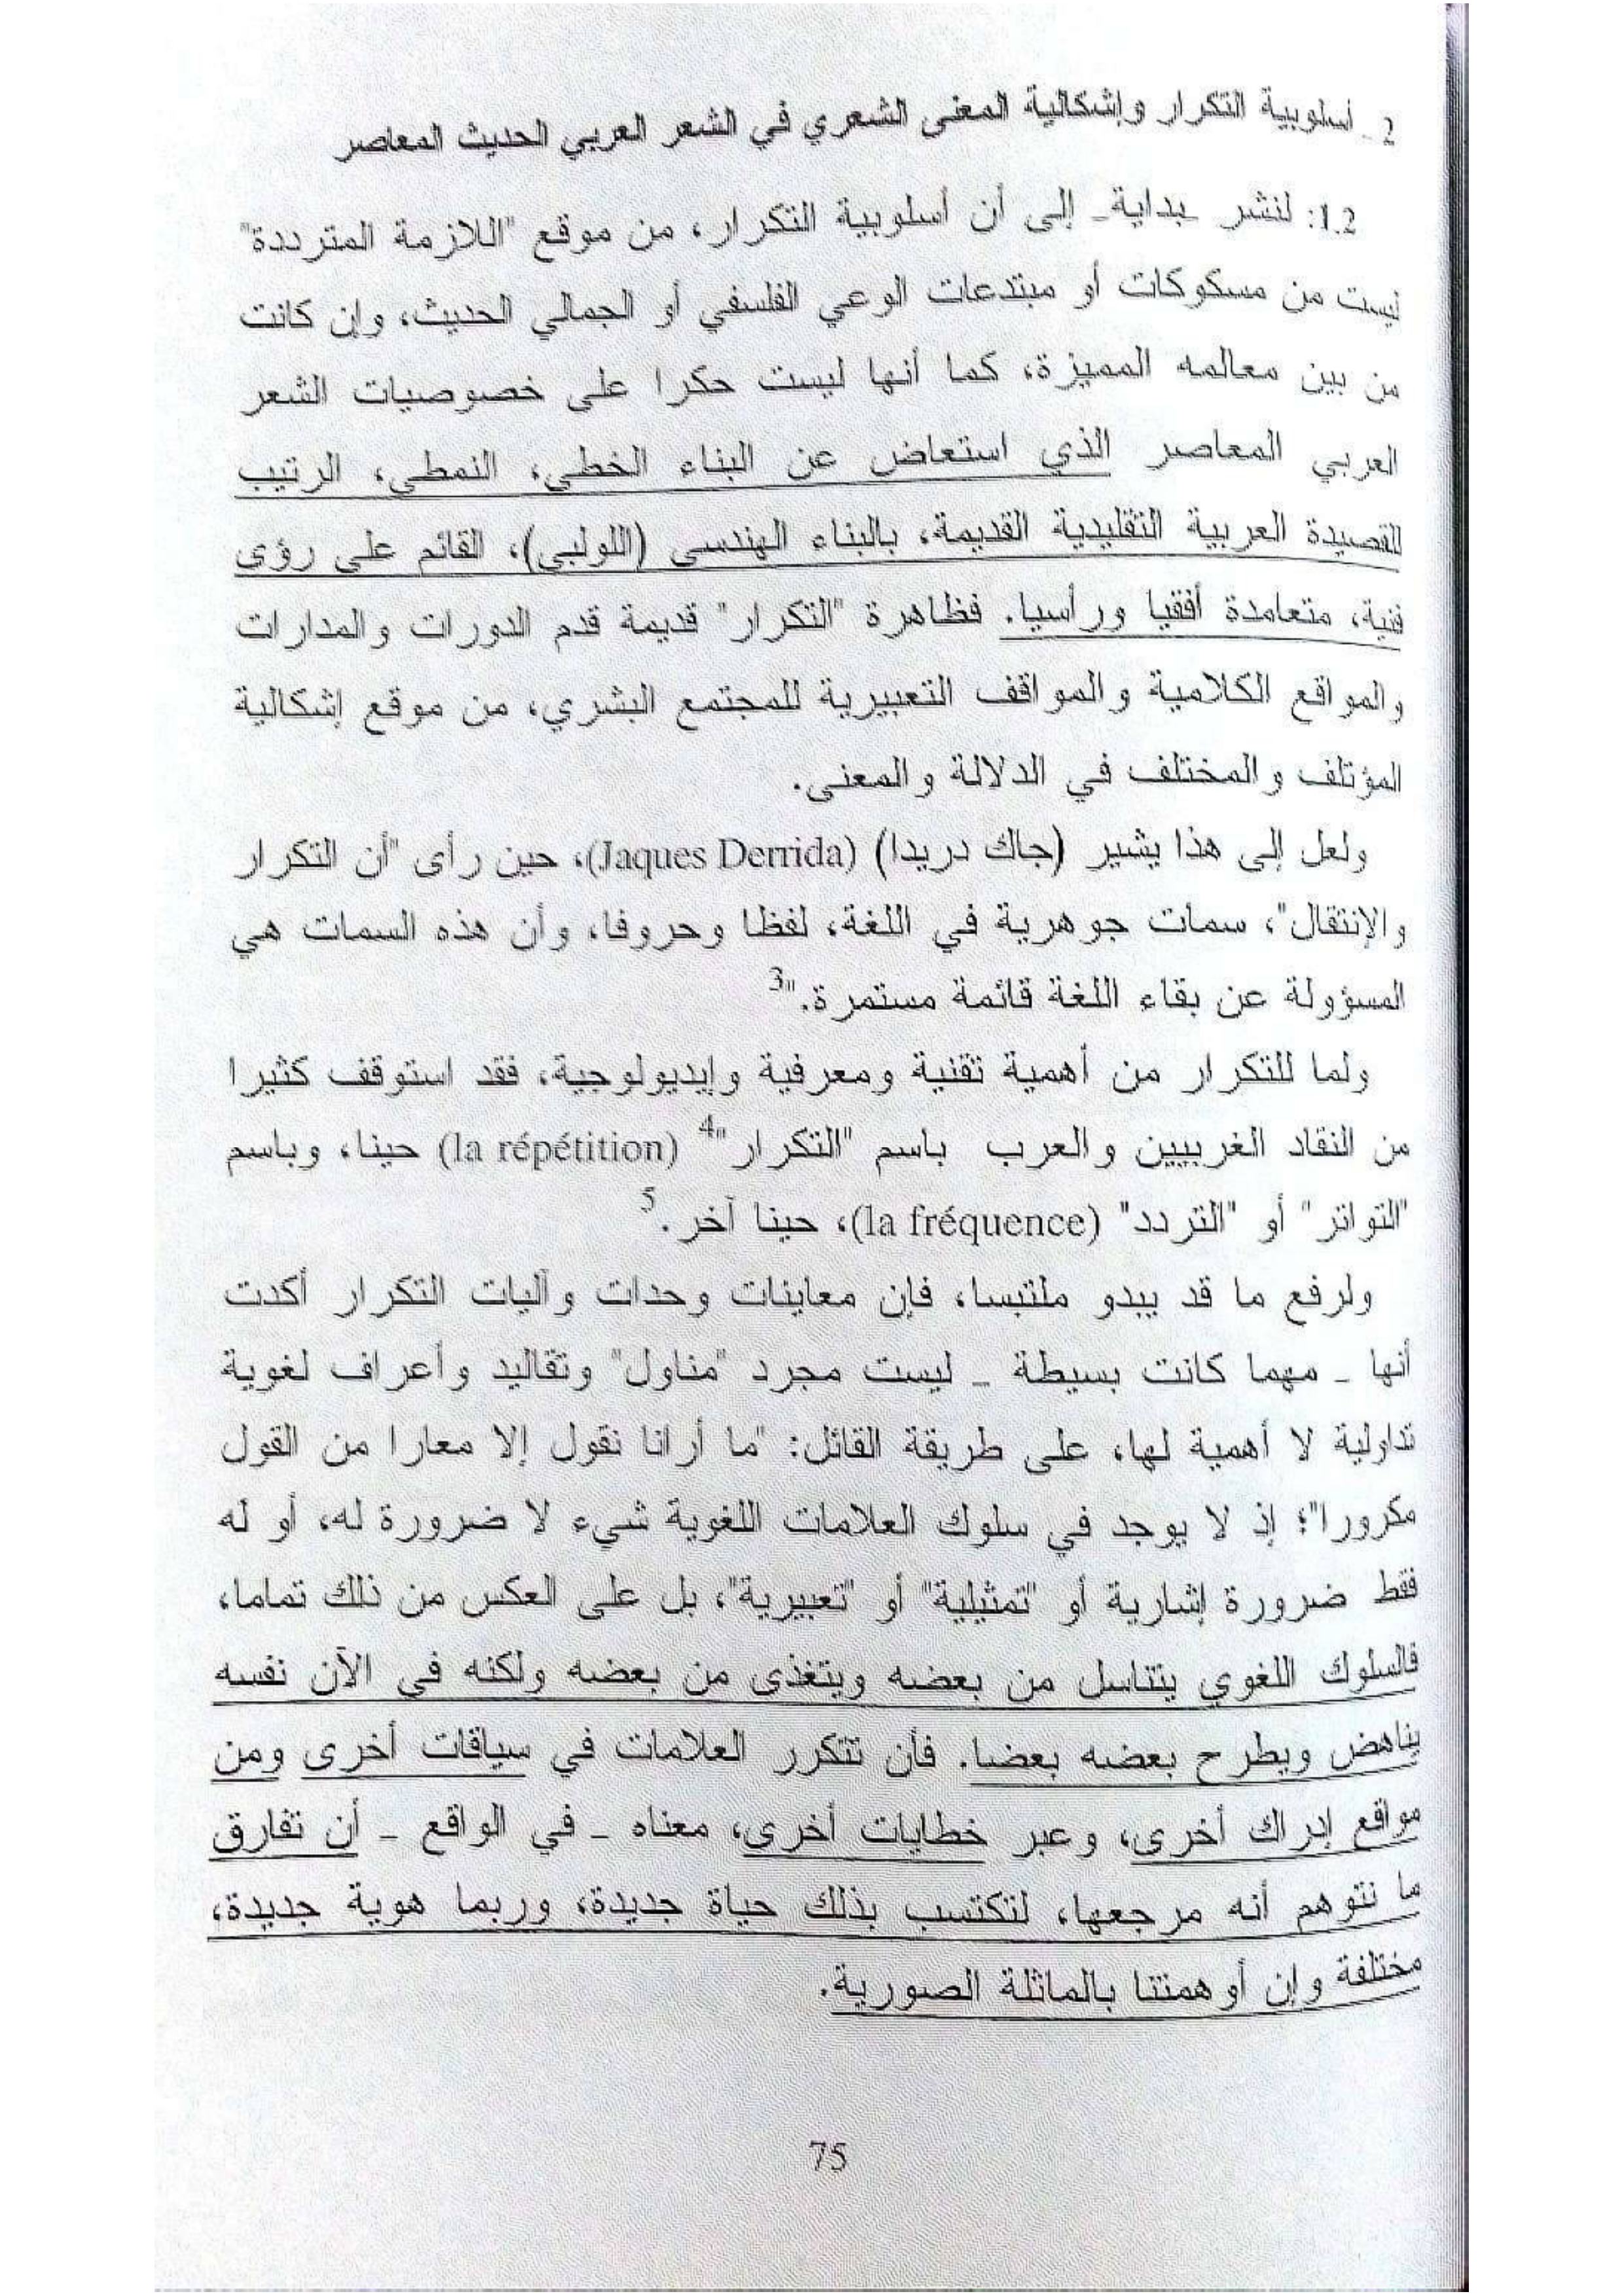 2 ـ أسلوبية التكرار وإشكالية المعنى الشعري في الشعر العربي الحديث المعاصر
1.2: لنشر ـبداية ـ إلى أن أسلوبية التكرار، من موقع "اللازمة المترددة"
ليست من مسكوكات أو مبتدعات الوعي الفلسفي أو الجمالي الحديث، وإن كانت
من بين معالمه المميزة، كما أنها ليست حكرا على خصوصيات الشعر
العربي المعاصر الذي استعاض عن البناء الخطي، النمطي، الرتيب
للقصيدة العربية التقليدية القديمة، بالبناء الهندسي (اللولبي)، القائم على رؤى
فنية، متعامدة أفقيا ورأسيا. فظاهرة "التكرار" قديمة قدم الدورات والمدارات
والمواقع الكلامية والمواقف التعبيرية للمجتمع البشري، من موقع إشكالية
المؤتلف والمختلف في الدلالة والمعنى.
ولعل إلى هذا يشير (جاك دريدا) (Jaques Derrida)، حين رأى "أن التكرار
والإنتقال"، سمات جوهرية في اللغة، لفظا وحروفا، وأن هذه السمات هي
المسؤولة عن بقاء اللغة قائمة مستمرة."3
ولما للتكرار من أهمية تقنية ومعرفية وإيديولوجية، فقد استوقف كثيرا
من النقاد الغربيين والعرب باسم "التكرار"4 (la répétition) حينا، وباسم
"التواتر" أو "التردد" (la fréquence)، حينا آخر.5
ولرفع ما قد يبدو ملتبسا، فإن معاينات وحدات وآليات التكرار أكدت
أنها ـ مهما كانت بسيطة ـ ليست مجرد "مناول" وتقاليد وأعراف لغوية
تداولية لا أهمية لها، على طريقة القائل: "ما أرانا نقول إلا معارا من القول
مكرورا"؛ إذ لا يوجد في سلوك العلامات اللغوية شيء لا ضرورة له، أو له
فقط ضرورة إشارية أو "تمثيلية" أو "تعبيرية"، بل على العكس من ذلك تماما،
فالسلوك اللغوي يتناسل من بعضه ويتغذى من بعضه ولكنه في الآن نفسه
يناهض ويطرح بعضه بعضا. فأن تتكرر العلامات في سياقات أخرى ومن
مواقع إدراك أخرى، وعبر خطايات أخرى، معناه ـ في الواقع ـ أن تفارق
ما نتوهم أنه مرجعها، لتكتسب بذلك حياة جديدة، وربما هوية جديدة،
مختلفة وإن أوهمتنا بالماثلة الصورية.
75